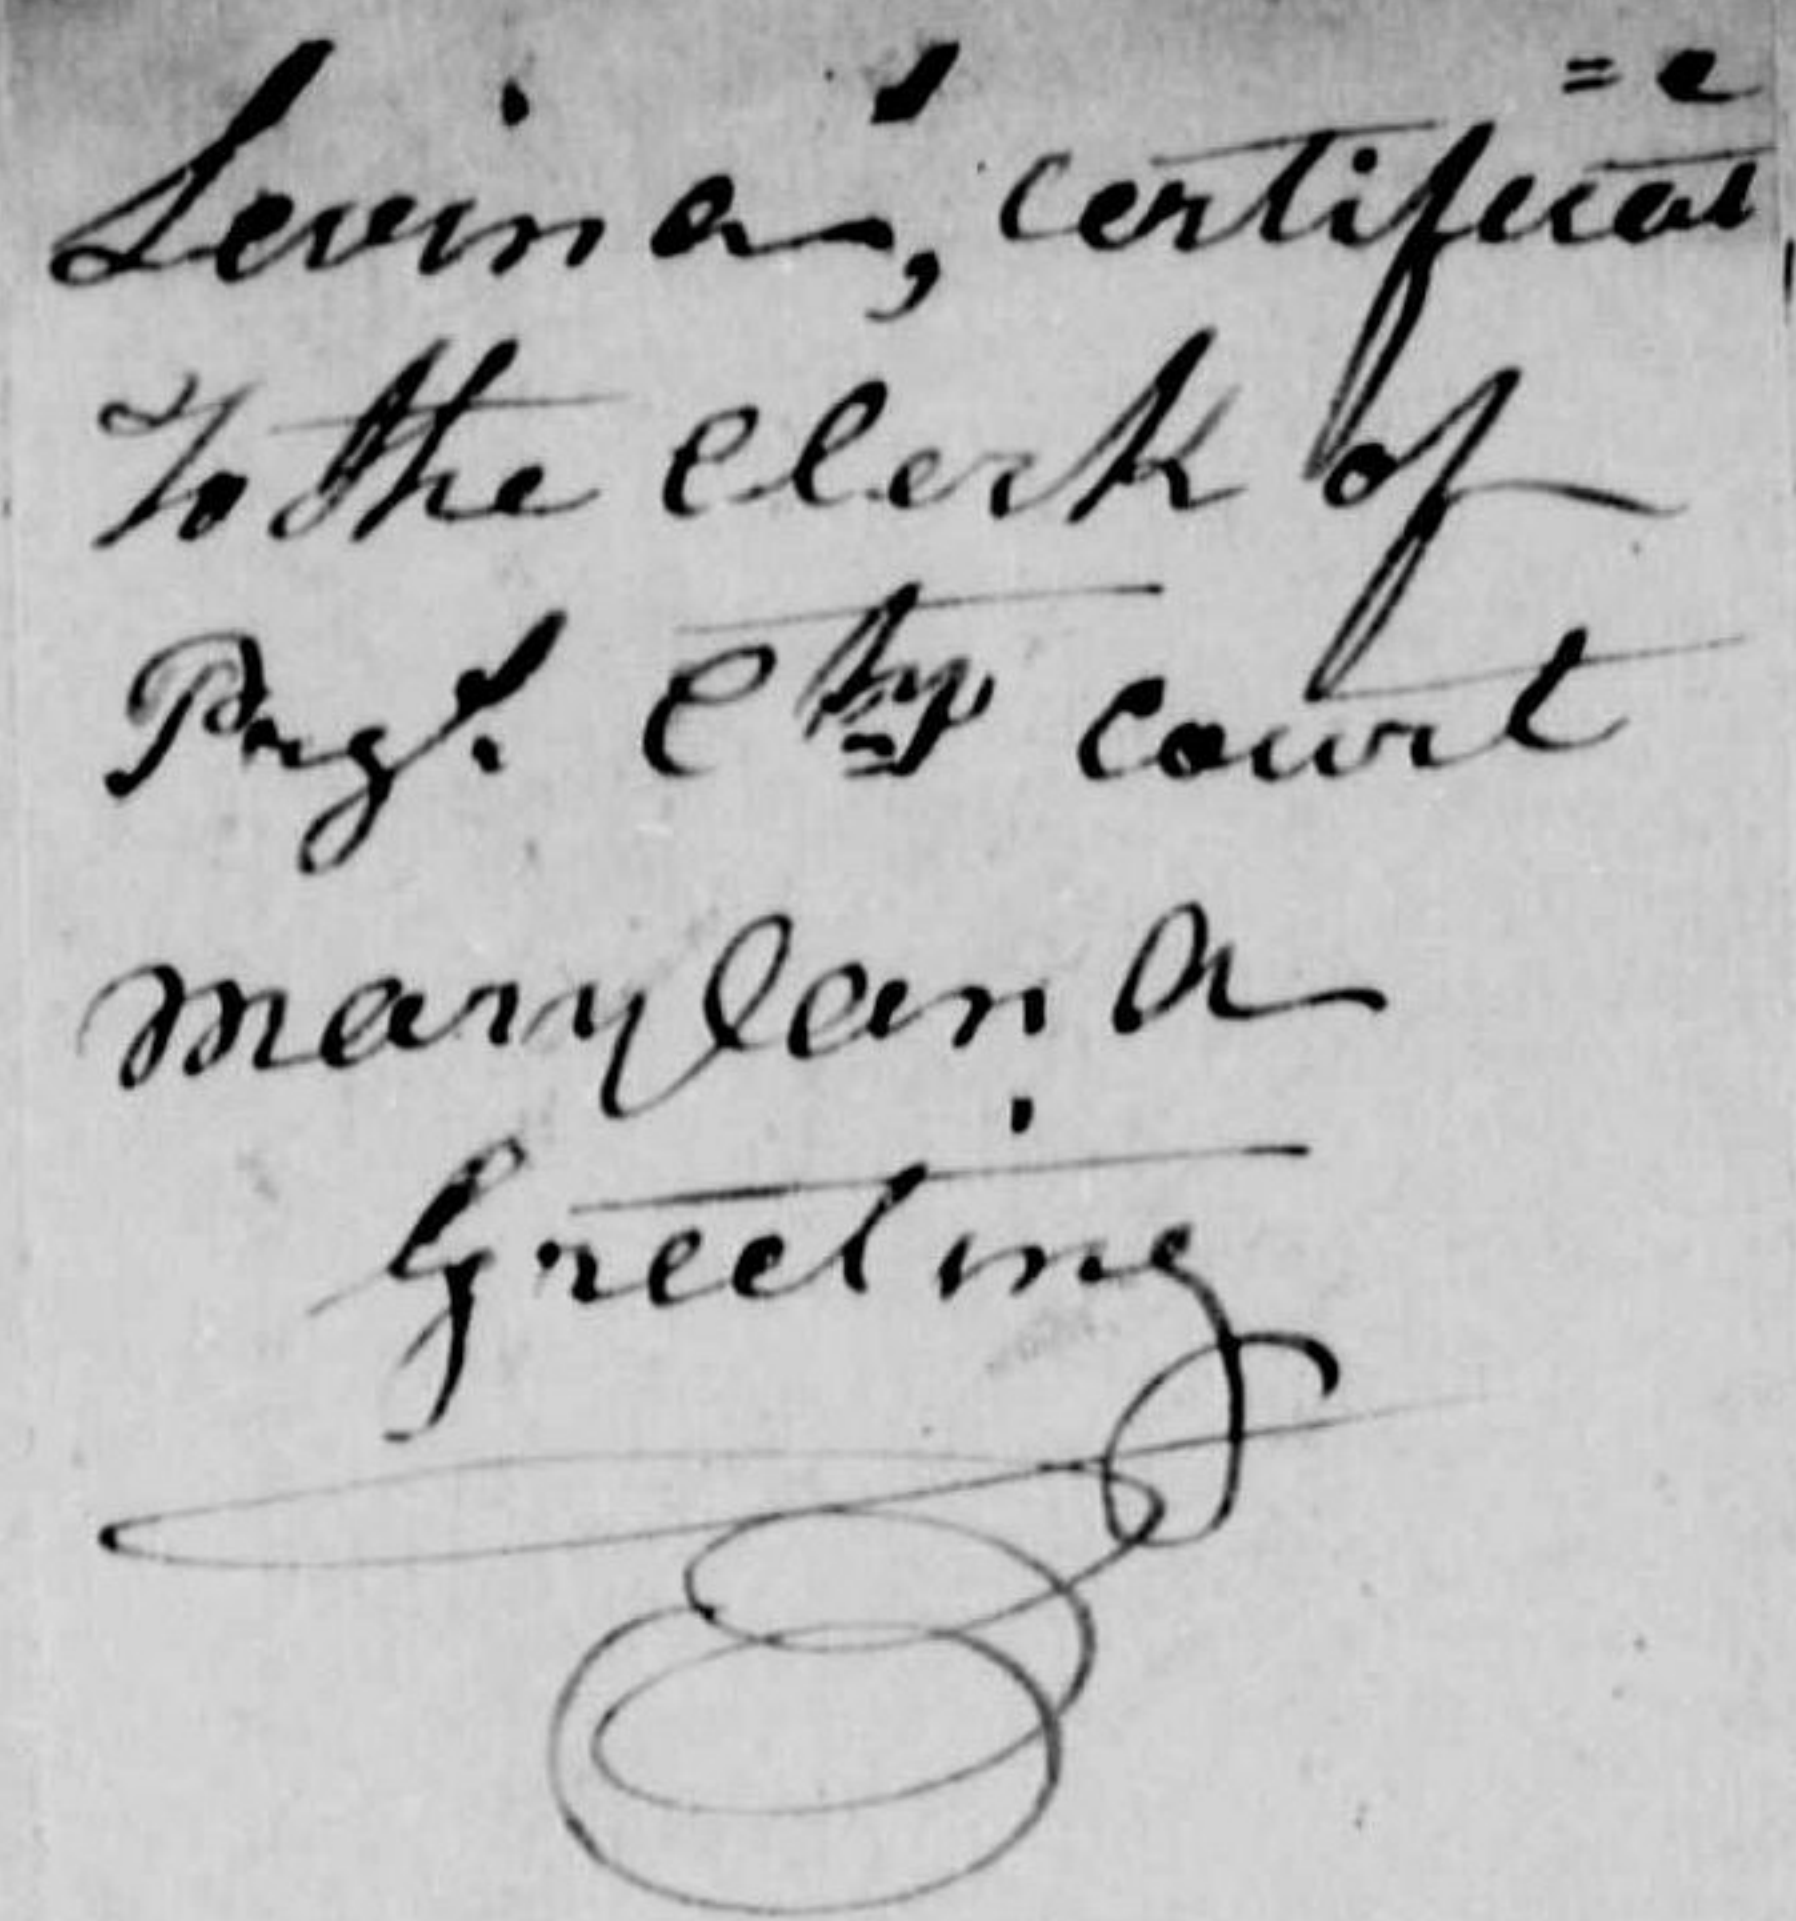 Levina's, certificat=e
To the Clerk of
Prgs. Cty court
Maryland
Greeting